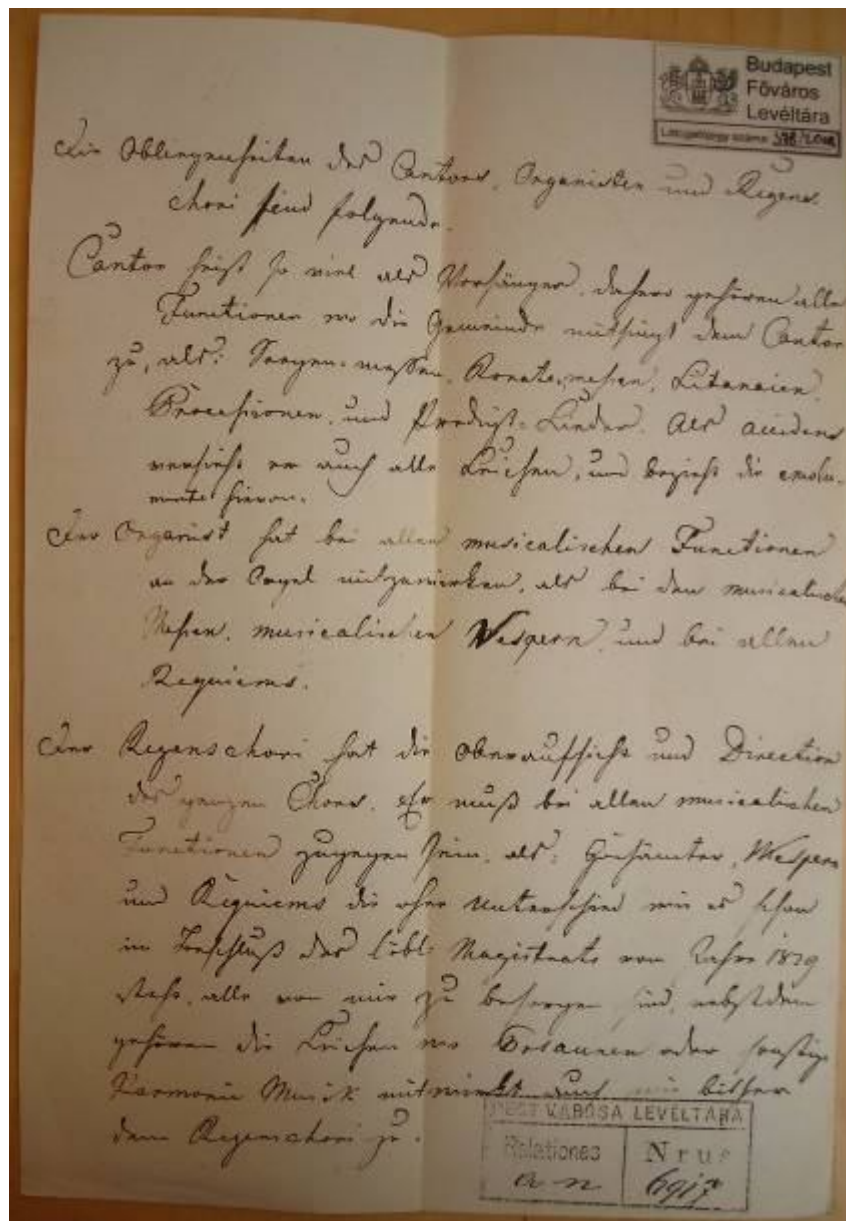 Budapest
Főváros
Levéltára
Die Obliegenheiten des Cantors, Organisten und Regens
chori sind folgende.
Cantor heißt so viel als Vorsänger, daher gehören alle
Functionen wo die Gemeinde mitsingt dem Cantor
zu, als: Segen-messen, Roratemessen, Litaneien,
Processionen, und Predigt-Lieder. Als accidens
versieht er auch alle Leichen, und bezieht die emolu-
mente hievon.
Der Organist hat bei allen musicalischen Functionen
an der Orgel mitzuwirken, als bei den musicalischen
Messen, musicalischen Vespern, und bei allen
Requiems.
Der Regenschori hat die Oberaufsicht und Direction
des ganzen Chors. Er muß bei allen musicalischen
Functionen zugegen sein, als: Hochämter, Vespern
und Requiems die ohne Unterschied wie es schon
im Beschluß des löbl: Magistrats vom Jahre 1829
steht, alle von mir zu besorgen sind, nebstdem
gehören die Leichen wo Posaunen oder sonstige
Harmonie Musik mitwirkt auch wie bisher
dem Regenschori zu.
PEST VÁROSA LEVÉLTÁRA
Relationes
a n
Nrus
6917